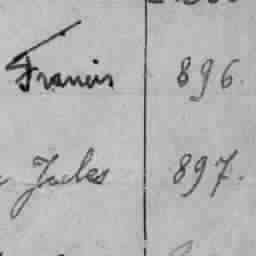 Francis 896.
Jackes 897.